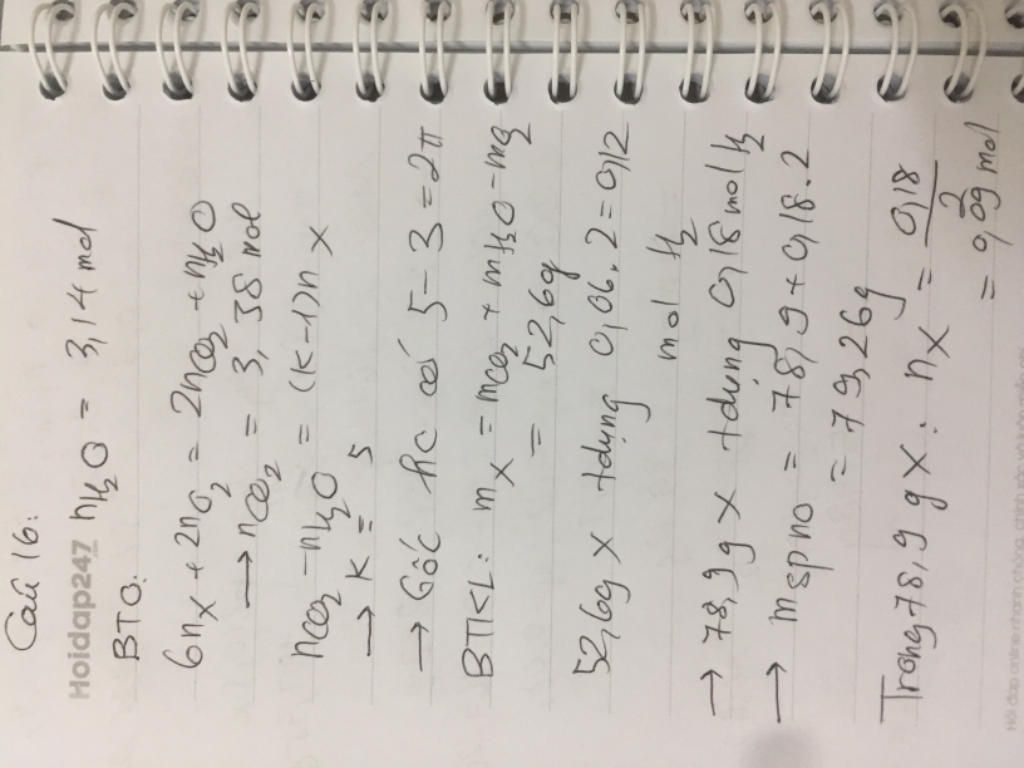 Câu 16:
Hoidap247 nH₂O = 3,14 mol
BTO:
6nX + 2nO₂ = 2nCO₂ + nH₂O
→ nCO₂ = 3,38 mol
nCO₂ - nH₂O = (k-1)nX
→ k = 5
→ Gốc hc có 5-3 = 2π
BTKL: mX = mCO₂ + mH₂O - mO₂
= 52,6g
52,6g X tdụng 0,06.2 = 0,12
mol H₂
→ 78,9 g X tdụng 0,18 mol H₂
→ m sp no = 78,9 + 0,18.2
= 79,26g
Trong 78,9 g X: nX = 0,18/2
= 0,09 mol
Hỏi đáp online nhanh chóng, chính xác và